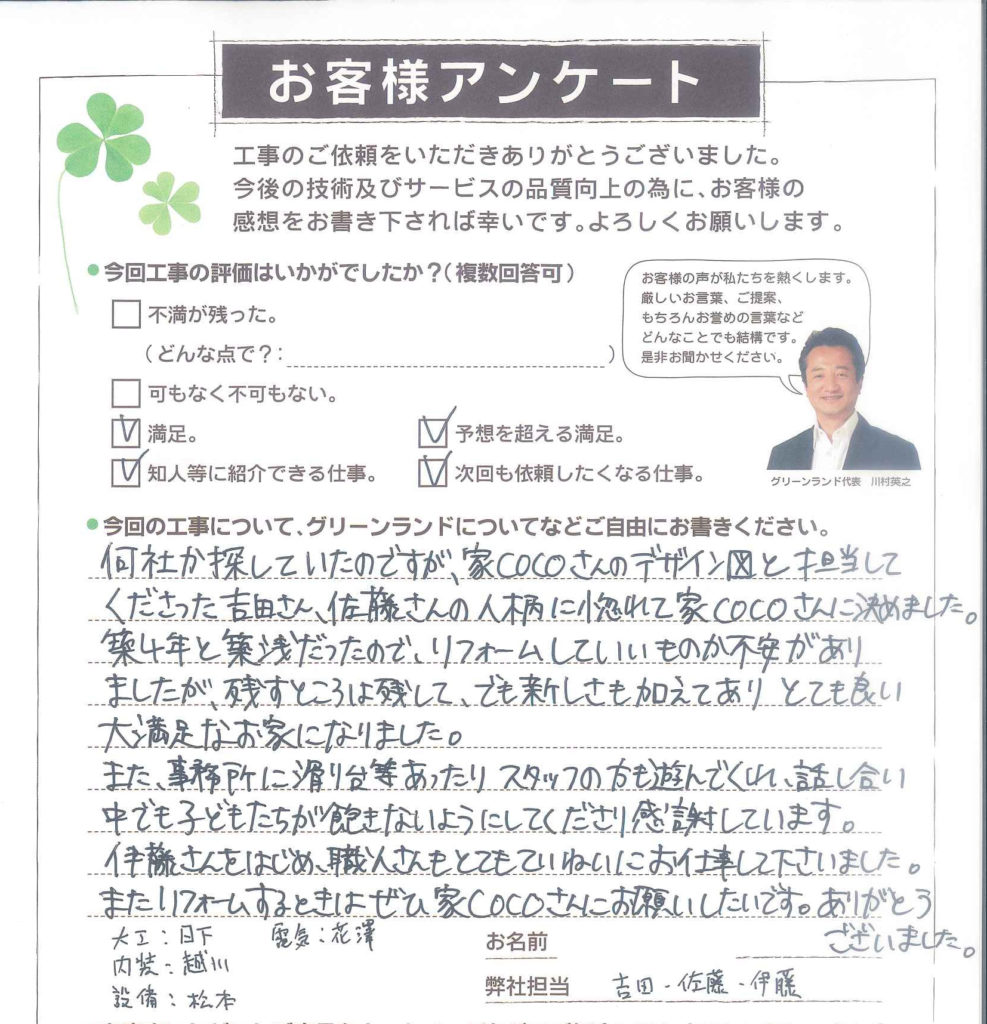 お客様アンケート
工事のご依頼をいただきありがとうございました。
今後の技術及びサービスの品質向上の為に、お客様の
感想をお書き下されば幸いです。よろしくお願いします。
●今回工事の評価はいかがでしたか？（複数回答可）
お客様の声が私たちを熱くします。
厳しいお言葉、ご提案、
もちろんお誉めの言葉など
どんなことでも結構です。
是非お聞かせください。
不満が残った。
（どんな点で？：　）
可もなく不可もない。
満足。　予想を超える満足。
知人等に紹介できる仕事。　次回も依頼したくなる仕事。
グリーンランド代表　川村英之
●今回の工事について、グリーンランドについてなどご自由にお書きください。
何社か探していたのですが、家COCOさんのデザイン図と担当して
くださった吉田さん、佐藤さんの人柄に惚れて家COCOさんに決めました。
築4年と築浅だったので、リフォームしていいものか不安があり
ましたが、残すところは残して、でも新しさも加えてあり とても良い
大満足なお家になりました。
また、事務所に滑り台等あったり スタッフの方も遊んでくれ、話し合い
中でも子どもたちが飽きないようにしてくださり感謝しています。
伊藤さんをはじめ、職人さんもとてもていねいにお仕事して下さいました。
またリフォームするときはぜひ家COCOさんにお願いしたいです。ありがとう
ございました。
大工：日下　電気：花澤
内装：越川
設備：松本
お名前
弊社担当　吉田・佐藤・伊藤